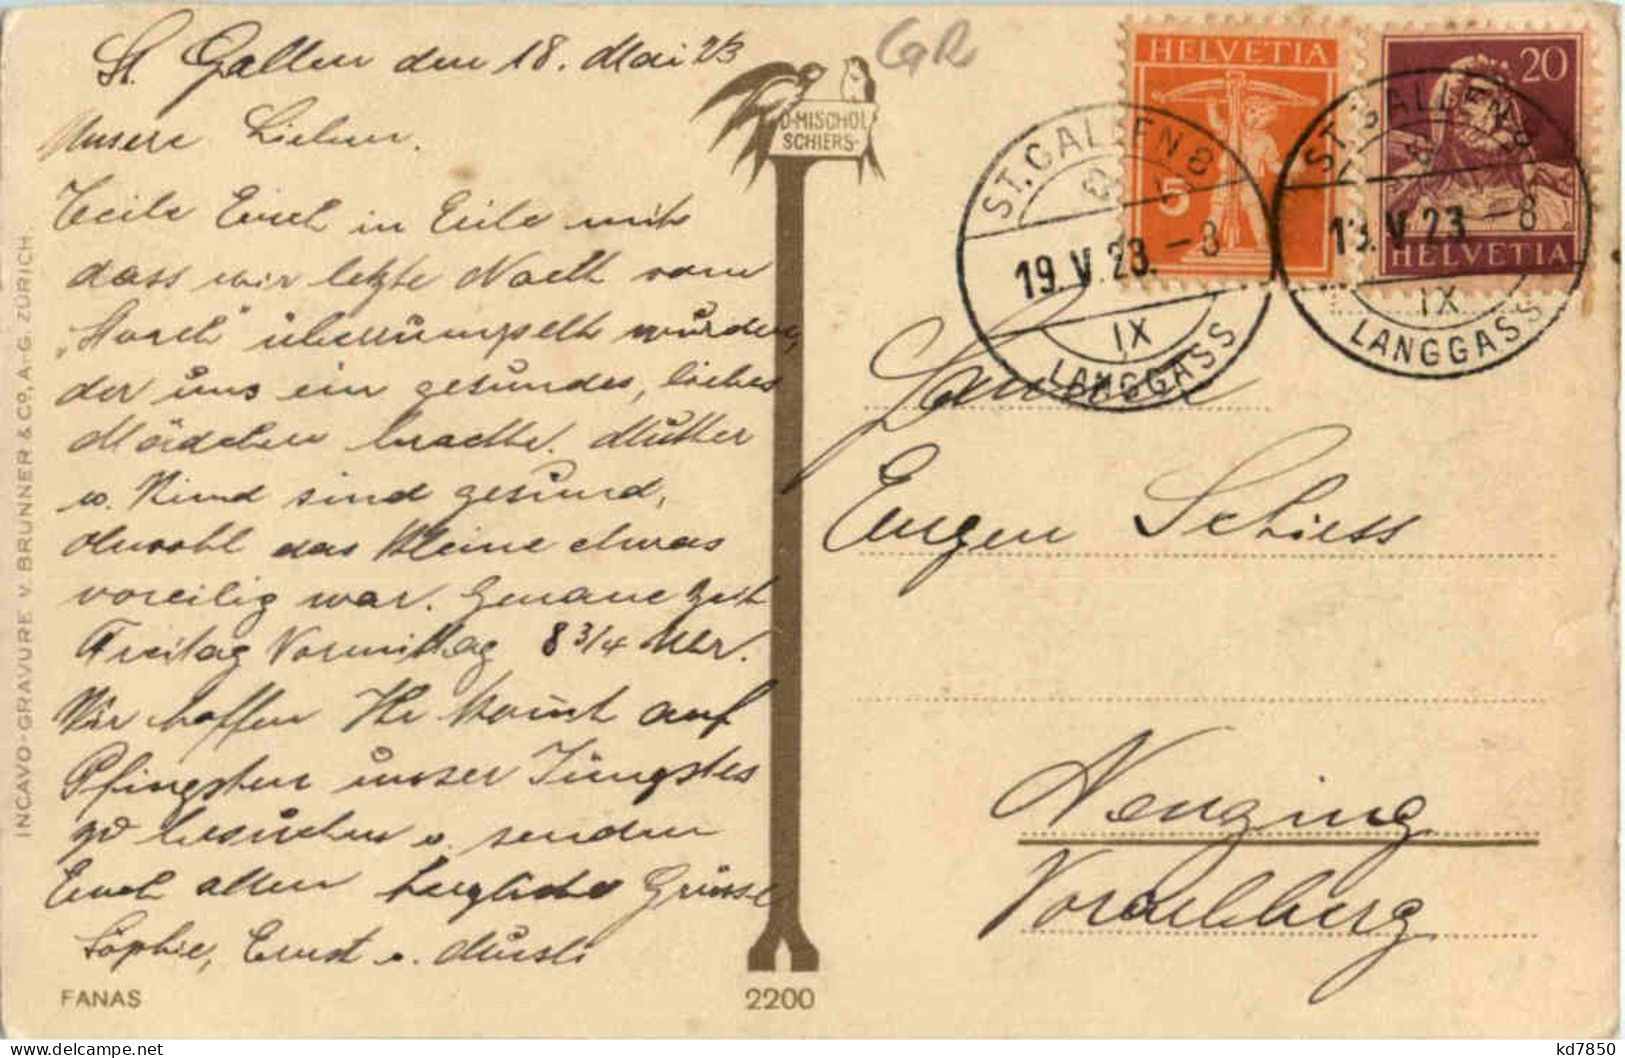 St. Gallen den 18. Mai 23
Unsere Lieben.
Teile Euch in Eile mit
dass wir letzte Nacht vom
"Storch" überrumpelt wurden,
der uns ein gesundes, liebes
Mädchen brachte. Mutter
u. Kind sind gesund,
obwohl das Kleine etwas
voreilig war. Genaue Zeit
Freitag Vormittag 8 3/4 Uhr.
Wir hoffen Ihr kommt auf
Pfingsten unser Jüngstes
zu besuchen u. senden
Euch allen herzliche Grüsse
Sophie, Ernst u.
FANAS
INCAVO-GRAVURE V. BRUNNER & CO., A-G. ZÜRICH.
D-MISCHOL
SCHIERS-
2200
GR
HELVETIA
5
20
HELVETIA
ST. GALLEN 8
19. V. 23. – 8
IX
LANGGASS
ST. GALLEN 8
19. V. 23 – 8
IX
LANGGASS
Familie
Eugen Schiess
Nenzing
Vorarlberg
kd7850